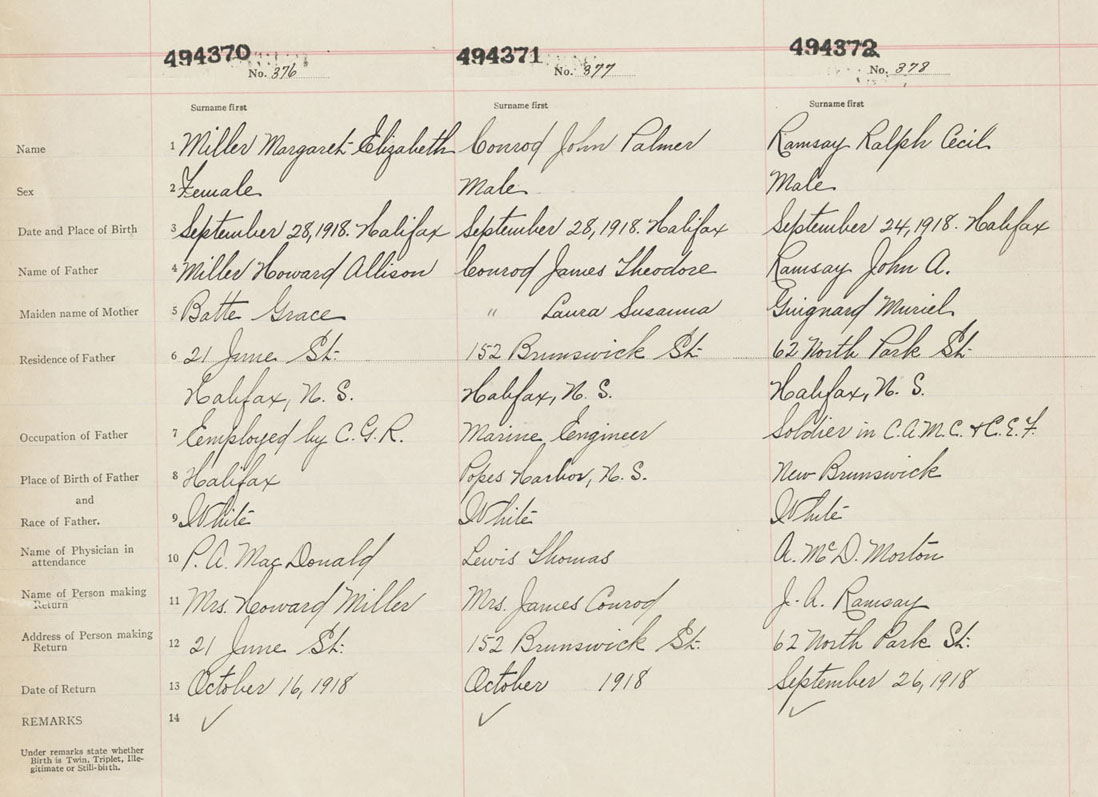 494370 494371 494372
No. 376 No. 377 No. 378
Surname first Surname first Surname first
Name 1 Miller Margaret Elizabeth Conrod John Palmer Ramsay Ralph Cecil
Sex 2 Female Male Male
Date and Place of Birth 3 September 28, 1918. Halifax September 28, 1918. Halifax September 24, 1918. Halifax
Name of Father 4 Miller Howard Allison Conrod James Theodore Ramsay John A.
Maiden name of Mother 5 Batte Grace " Laura Susanna Guignard Muriel
Residence of Father 6 21 June St. 152 Brunswick St. 62 North Park St.
Halifax, N. S. Halifax, N. S. Halifax, N. S.
Occupation of Father 7 Employed by C. G. R. Marine Engineer Soldier in C.A.M.C. & C.E.F.
Place of Birth of Father 8 Halifax Popes Harbor, N. S. New Brunswick
and
Race of Father. 9 White White White
Name of Physician in
attendance 10 P. A. MacDonald Lewis Thomas A. McD. Morton
Name of Person making
Return 11 Mrs. Howard Miller Mrs. James Conrod J. A. Ramsay
Address of Person making
Return 12 21 June St. 152 Brunswick St. 62 North Park St.
Date of Return 13 October 16, 1918 October 1918 September 26, 1918
REMARKS 14 ✓ ✓ ✓
Under remarks state whether
Birth is Twin, Triplet, Ille-
gitimate or Still-birth.